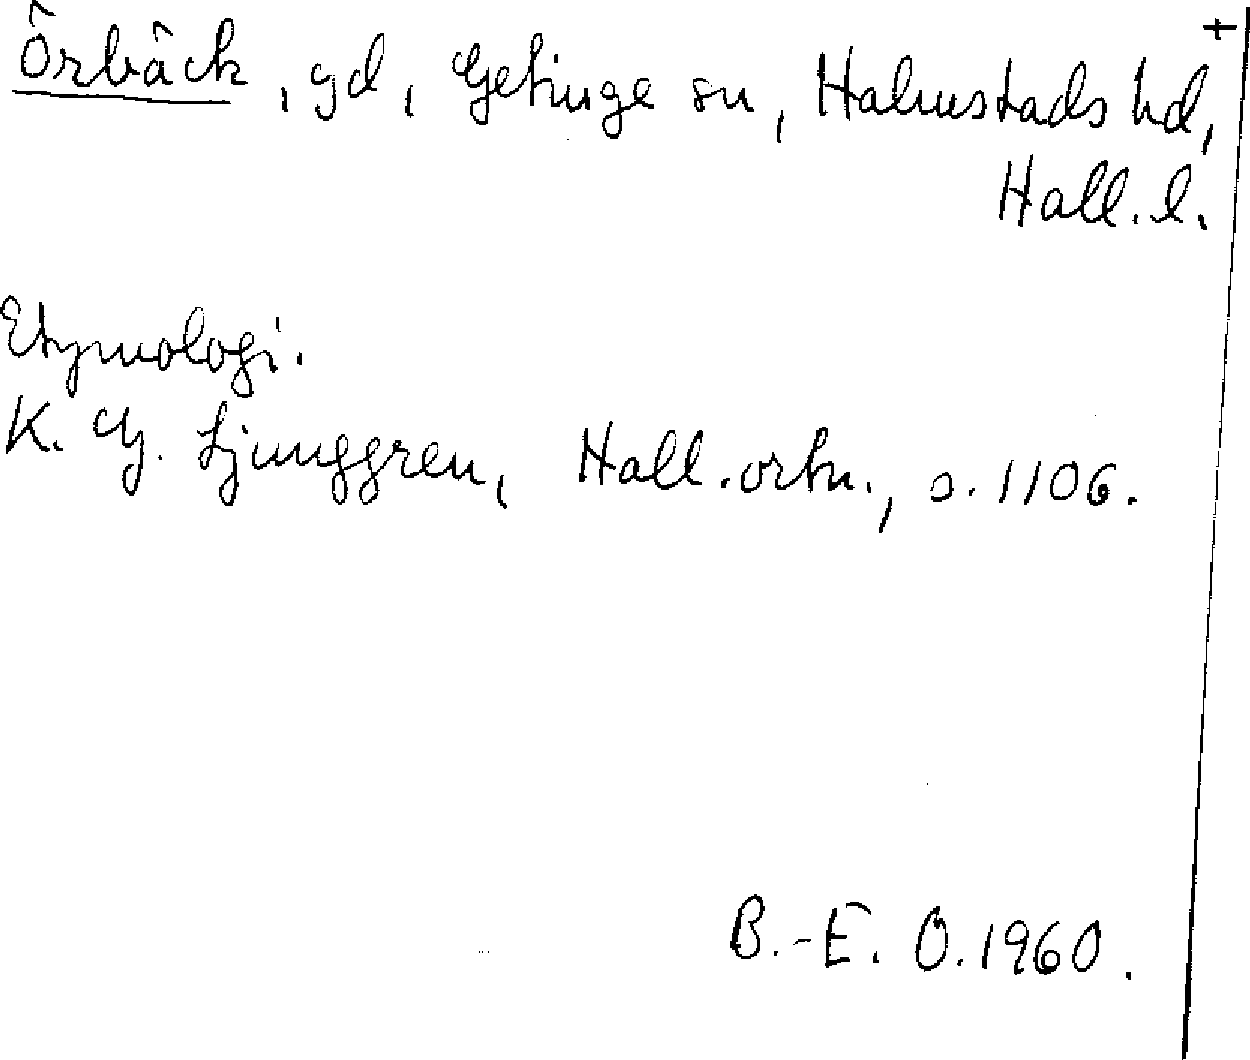 +
Örbäck, gd, Getinge sn, Halmstads hd,
Hall. l.
Etymologi.
K. G. Ljunggren, Hall. ortn., s. 1106.
B.-E. O. 1960.